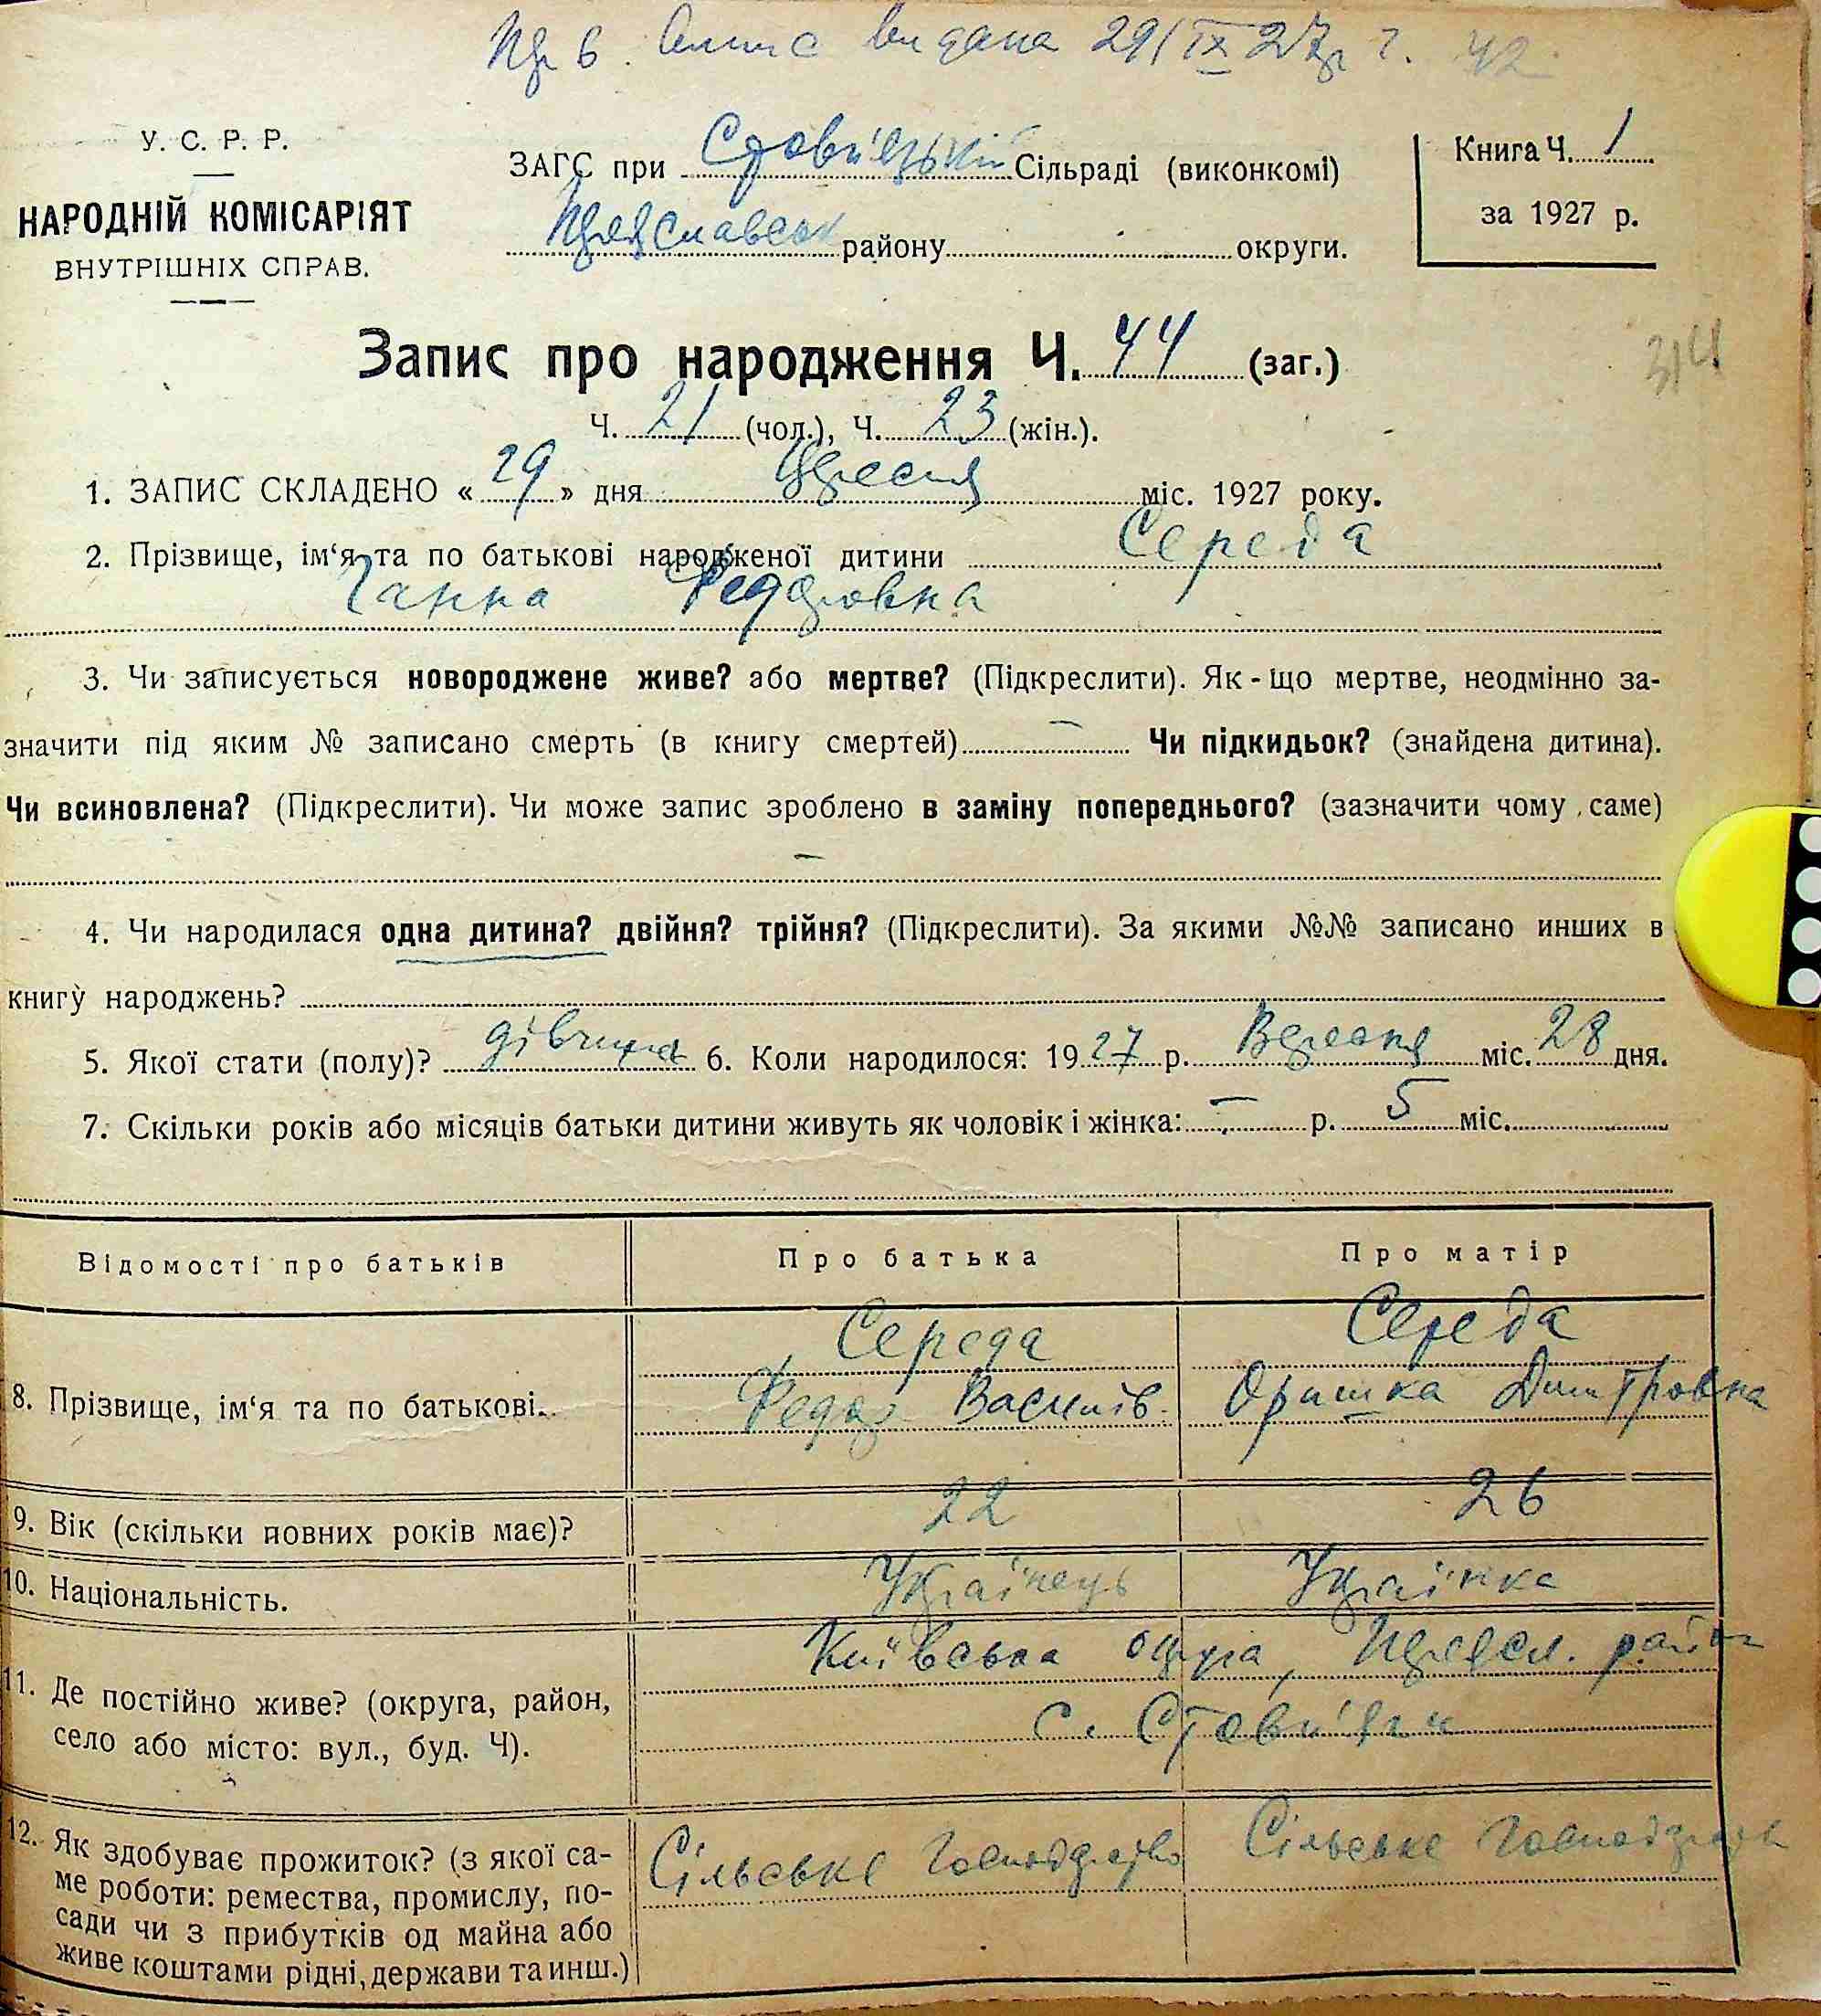 видана 29/IX 27 р. 42
У. С. Р. Р.
НАРОДНІЙ КОМІСАРІЯТ
ВНУТРІШНІХ СПРАВ.
ЗАГС при Стовп'язькій Сільраді (виконкомі)
району округи.
Книга Ч. 1
за 1927 р.
Запис про народження Ч. 44 (заг.)
314
Ч. 21 (чол.), Ч. 23 (жін.).
1. ЗАПИС СКЛАДЕНО « 29 » дня Вересня міс. 1927 року.
2. Прізвище, ім'я та по батькові народженої дитини Середа
Ганна Федоровна
3. Чи записується новороджене живе? або мертве? (Підкреслити). Як-що мертве, неодмінно за-
значити під яким № записано смерть (в книгу смертей) — Чи підкидьок? (знайдена дитина).
Чи всиновлена? (Підкреслити). Чи може запис зроблено в заміну попереднього? (зазначити чому саме)
—
4. Чи народилася одна дитина? двійня? трійня? (Підкреслити). За якими №№ записано инших в
книгу народжень?
5. Якої стати (полу)? дівчина 6. Коли народилося: 1927 р. Вересня міс. 28 дня.
7. Скільки років або місяців батьки дитини живуть як чоловік і жінка: — р. 5 міс.
Відомості про батьків Про батька Про матір
Середа Середа
8. Прізвище, ім'я та по батькові. Федор Василів. Оришка Дмитровна
9. Вік (скільки повних років має)? 22 26
10. Національність. Українець Українка
Київська округа, Переясл. район
11. Де постійно живе? (округа, район,
село або місто: вул., буд. Ч).
с. Стовп'яги
12. Як здобуває прожиток? (з якої са-
ме роботи: ремества, промислу, по-
сади чи з прибутків од майна або
живе коштами рідні, держави та инш.)
Сільське Господарство Сільське Господарств